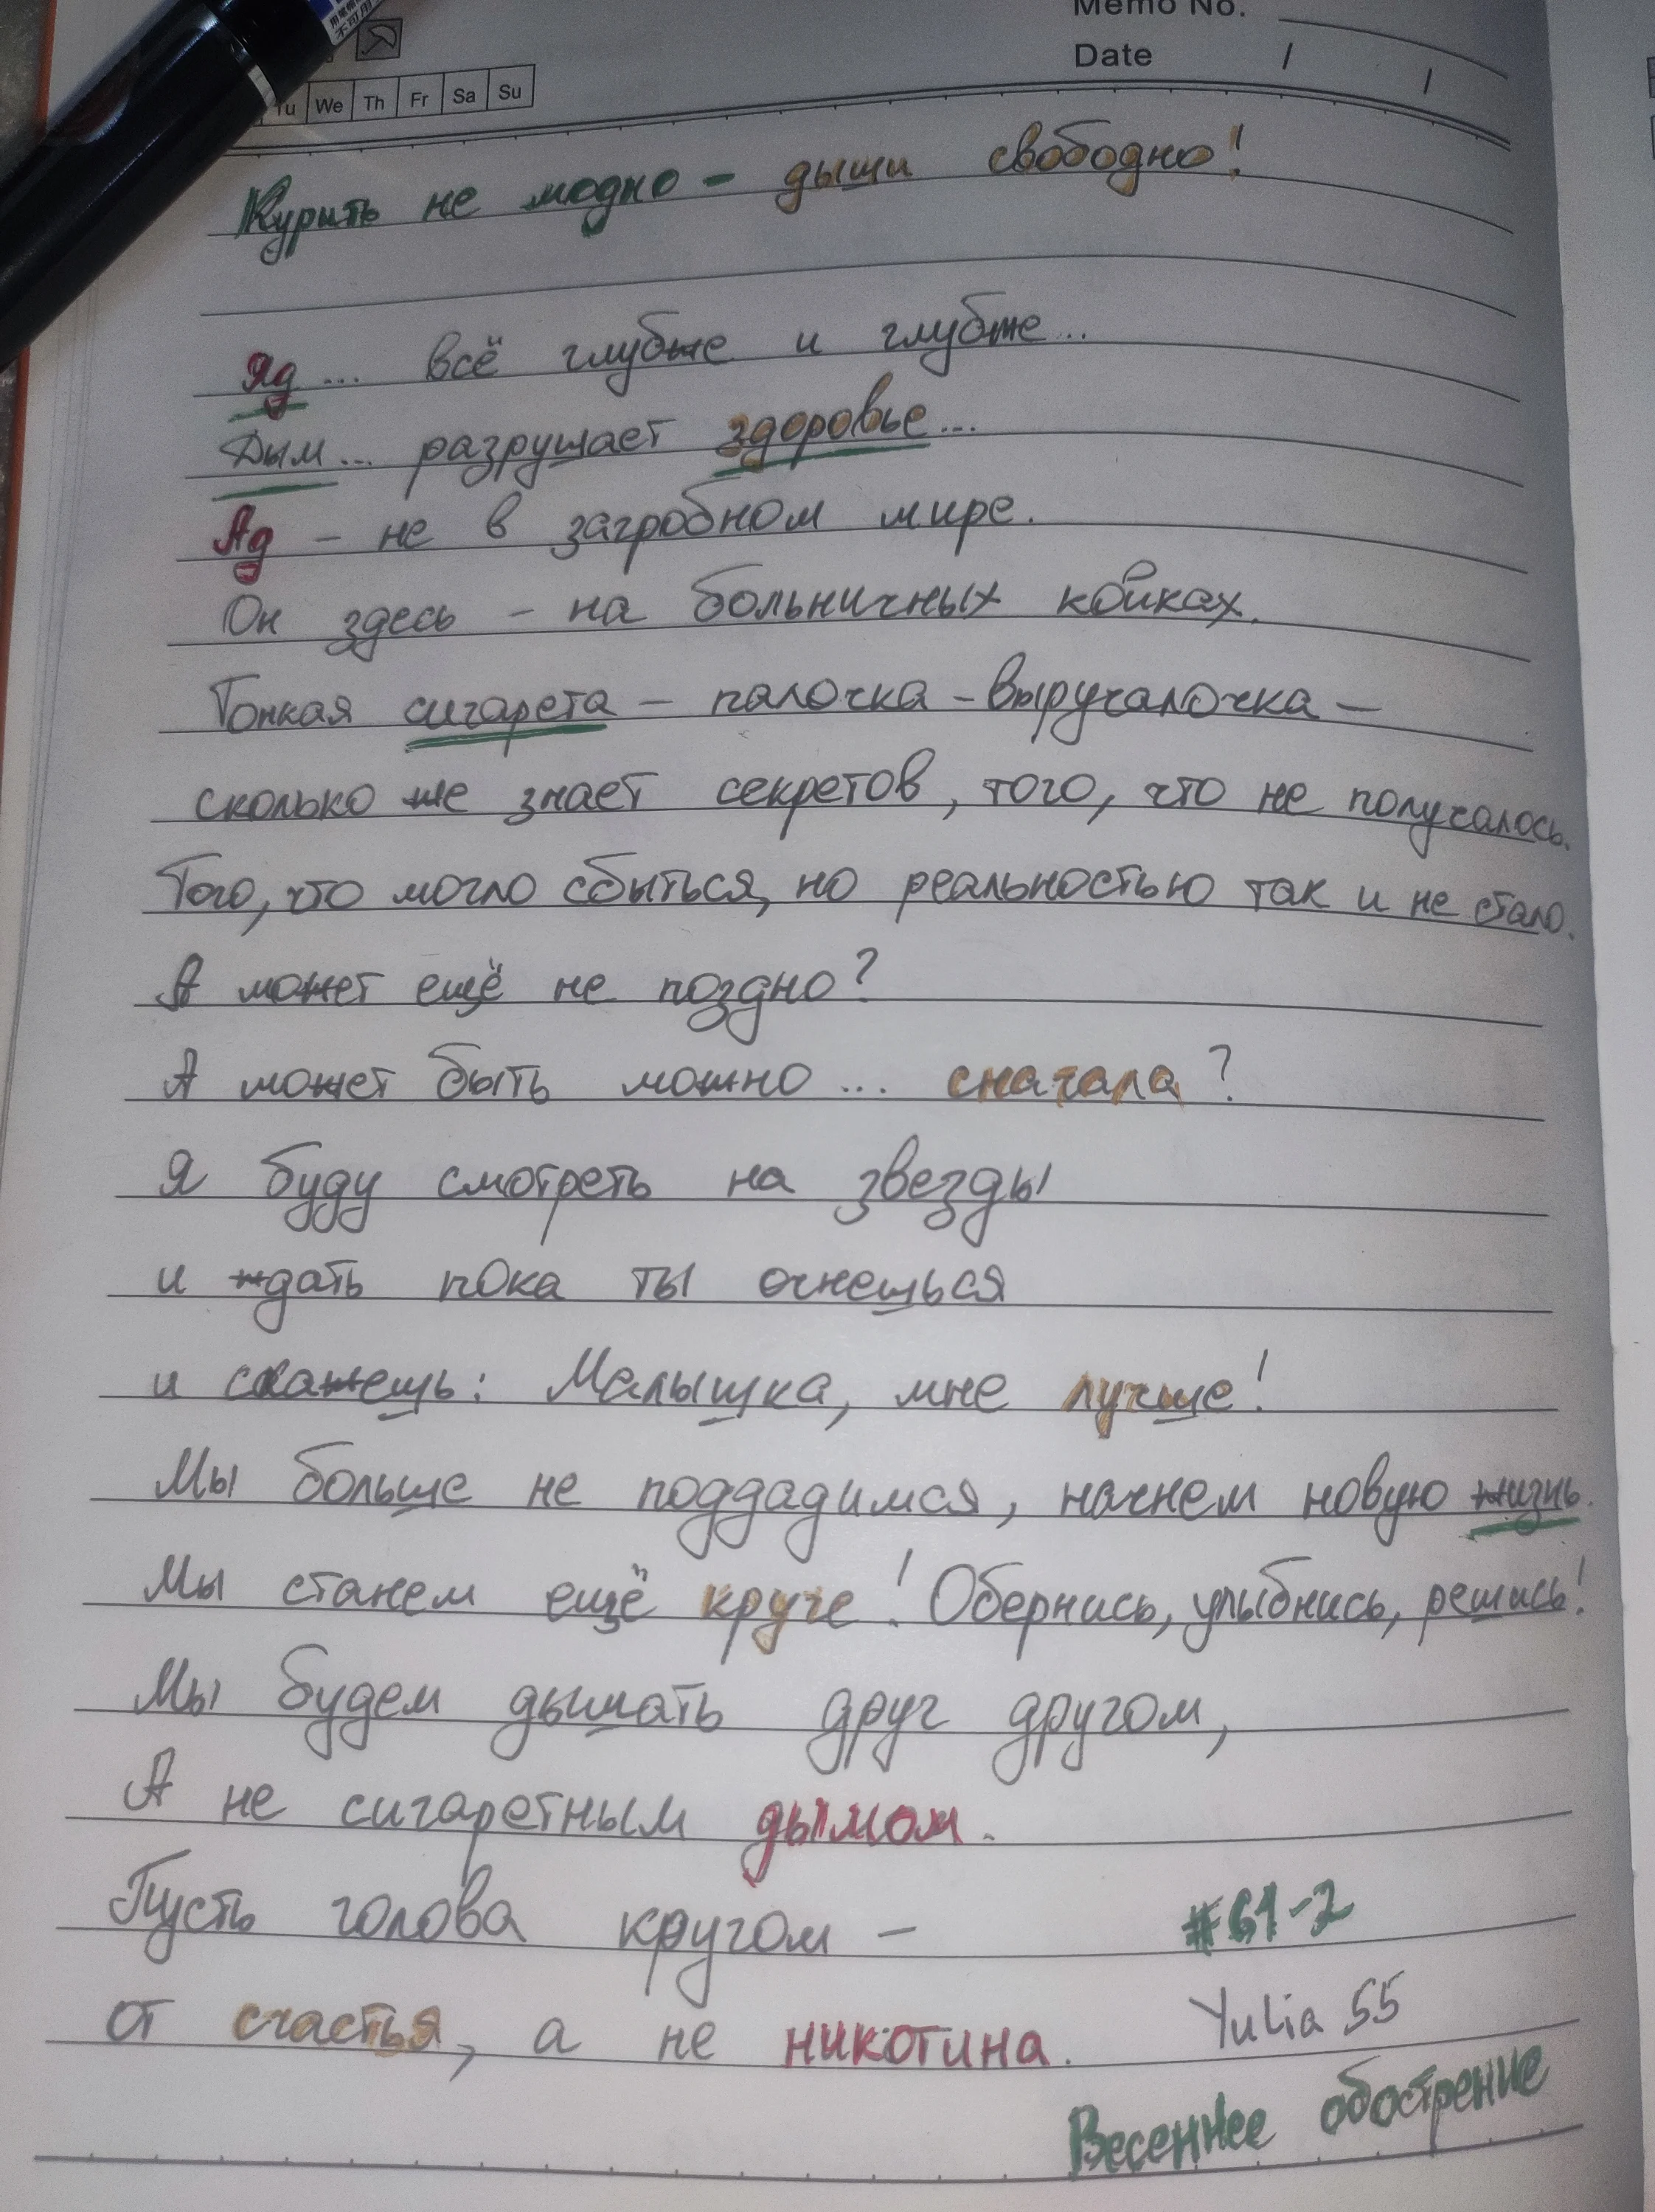 Memo No.
Date / /
Tu We Th Fr Sa Su
Курить не модно - дыши свободно!
Яд... всё глубже и глубже...
Дым... разрушает здоровье...
Ад - не в загробном мире.
Он здесь - на больничных койках.
Тонкая сигарета - палочка-выручалочка -
сколько же знает секретов, того, что не получалось.
Того, что могло сбыться, но реальностью так и не стало.
А может ещё не поздно?
А может быть можно... сначала?
Я буду смотреть на звезды
и ждать пока ты очнешься
и скажешь: Малышка, мне лучше!
Мы больше не поддадимся, начнем новую жизнь.
Мы станем ещё круче! Обернись, улыбнись, решись!
Мы будем дышать друг другом,
А не сигаретным дымом.
Пусть голова кругом -
от счастья, а не никотина.
#61-2
Yulia 55
Весеннее обострение